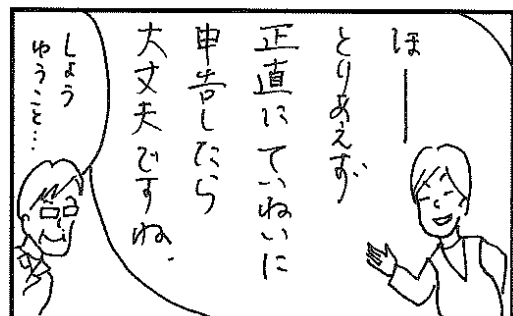 ほー
とりあえず
正直にていねいに
申告したら
大丈夫ですね.
しょう
ゆうこと…